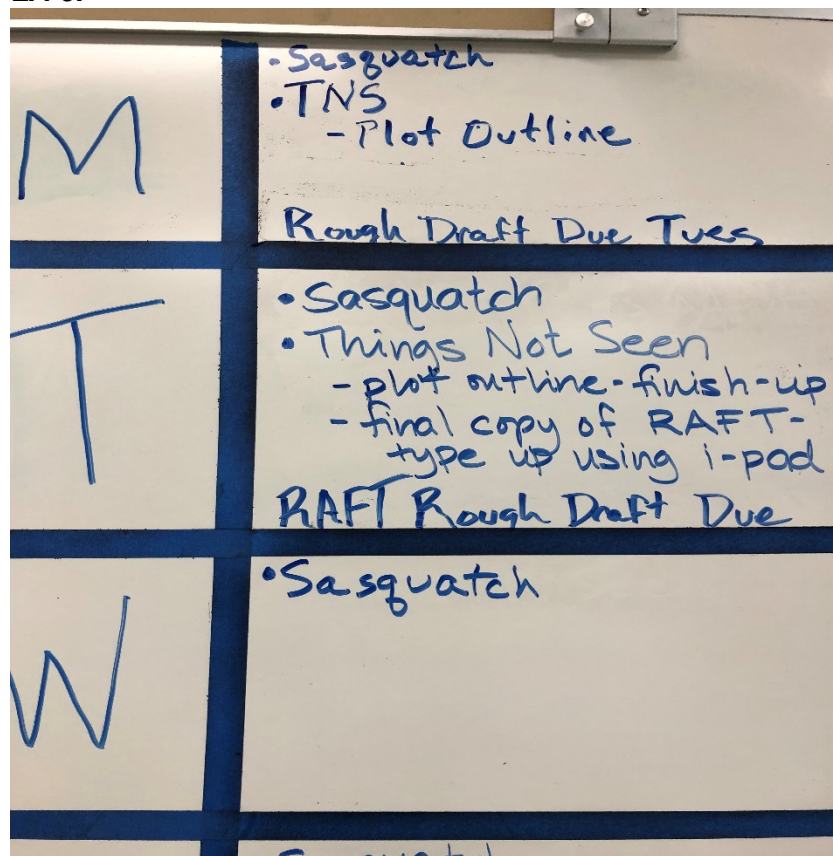 M
• Sasquatch
• TNS
- Plot Outline
Rough Draft Due Tues
T
• Sasquatch
• Things Not Seen
- plot outline - finish-up
- final copy of RAFT -
type up using i-pod
RAFT Rough Draft Due
W
• Sasquatch